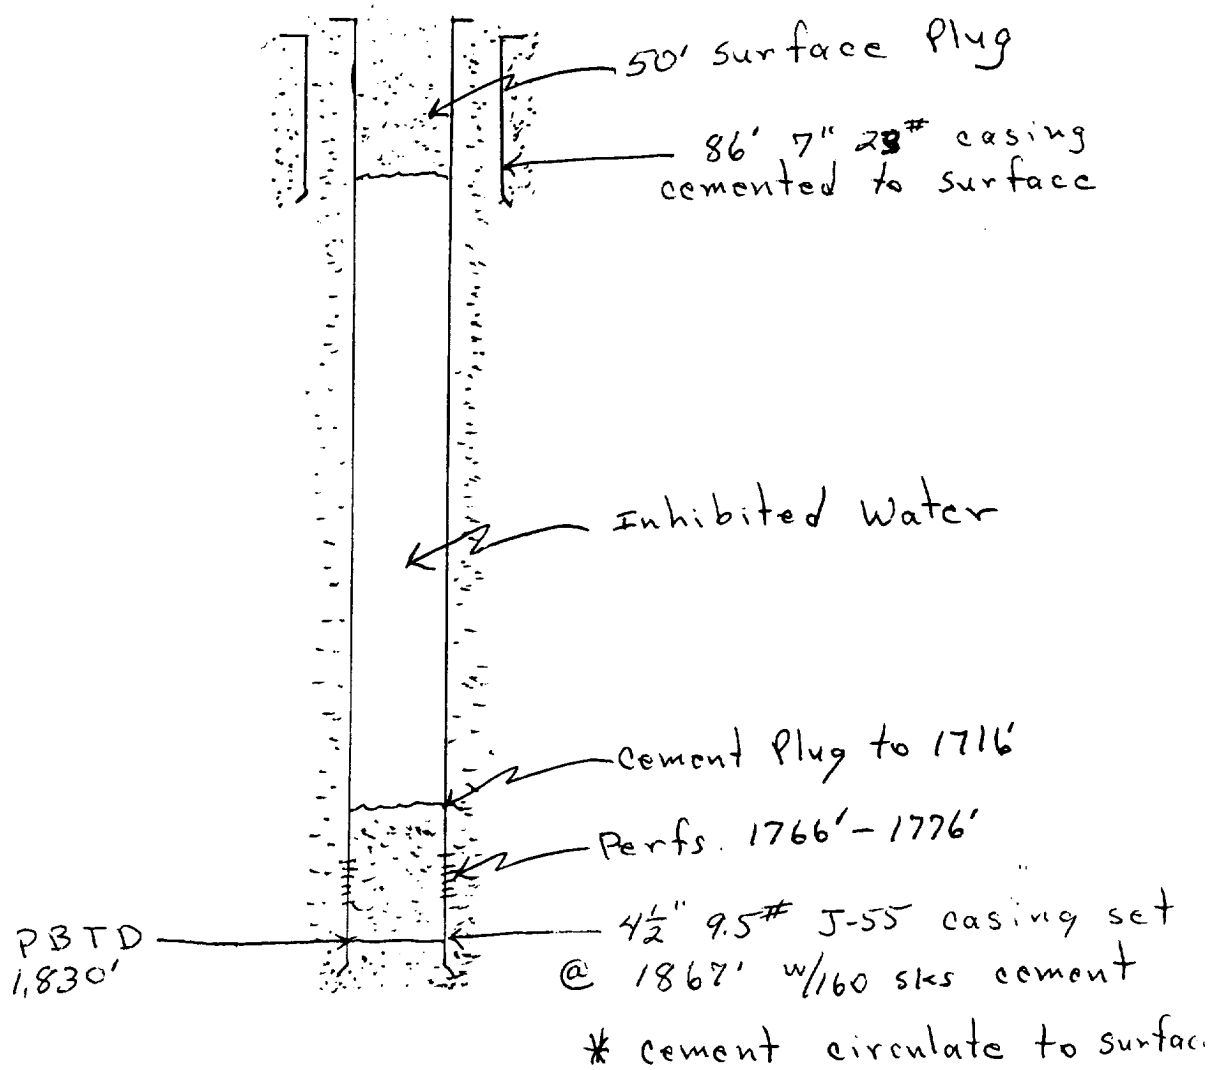 50' surface Plug
86' 7" # casing
cemented to surface
Inhibited Water
Cement Plug to 1716'
Perfs. 1766'-1776'
PBTD
1,830'
4½" 9.5# J-55 casing set
@ 1867' w/160 sks cement
* cement circulate to surfac